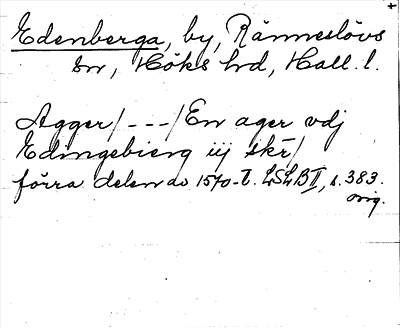 Edenberga, by, Ränneslövs
sn, Höks hd, Hall. l.
Agger/---/En ager vdj
Edingebierg iij skr/
förra delen av 1570-t. LSLB II, s. 383.
orig.